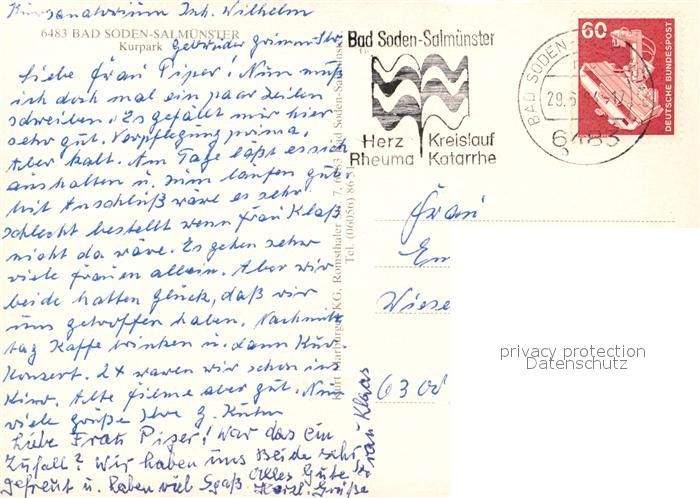 Kursanatorium Inh. Wilhelm
6483 BAD SODEN-SALMÜNSTER
Kurpark
Gebrüder Grimm Str.
Liebe Frau Piper! Nun muß
ich doch mal ein paar Zeilen
schreiben. Es gefällt mir hier
sehr gut. Verpflegung prima,
Aber kalt. Am Tage läßt es sich
aushalten u. zum laufen gut.
Mit Anschluß wäre es sehr
schlecht bestellt wenn Frau Klaß
nicht da wäre. Es gehen sehr
viele Frauen allein. Aber wir
beide hatten Glück, daß wir
uns getroffen haben. Nachmit
tag Kaffe trinken u. dann Kur
Konzert. 2x waren wir schon ins
Kino. Alte Filme aber gut. Nun
viele Grüße Ihre G. Kuhn
Liebe Frau Piper! War das ein
Zufall? Wir haben uns beide sehr
gefreut u. haben viel Spaß. Alles Gute
Herzl. Grüße
Frau Klaas
Kurt Marburger KG, Romsthaler 7, 6483 Bad Soden-Salmünster
Tel. (06056) 86 51
Bad Soden-Salmünster
Herz Kreislauf
Rheuma Katarrhe
BAD SODEN-
29.6.
6483
60
DEUTSCHE BUNDESPOST
Frau
Em
Wiese
6300
privacy protection
Datenschutz